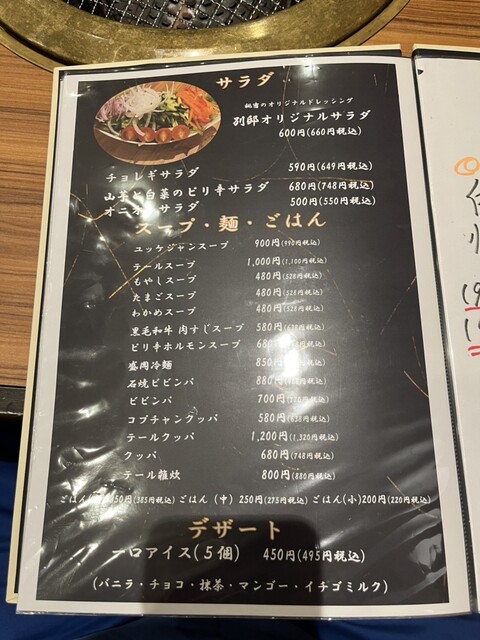 サラダ
秘密のオリジナルドレッシング
別邸オリジナルサラダ
600円(660円税込)
チョレギサラダ 590円(649円税込)
山芋と白菜のピリ辛サラダ 680円(748円税込)
オニオンサラダ 500円(550円税込)
スープ・麺・ごはん
ユッケジャンスープ 900円(990円税込)
テールスープ 1,000円(1,100円税込)
もやしスープ 480円(528円税込)
たまごスープ 480円(528円税込)
わかめスープ 480円(528円税込)
黒毛和牛 肉すじスープ 580円(638円税込)
ピリ辛ホルモンスープ 680円
盛岡冷麺 850円
石焼ビビンバ 880円
ビビンバ 700円
コプチャンクッパ 580円(638円税込)
テールクッパ 1,200円(1,320円税込)
クッパ 680円(748円税込)
テール雑炊 800円(880円税込)
ごはん 350円(385円税込) ごはん (中) 250円(275円税込) ごはん(小)200円(220円税込)
デザート
一口アイス(5個) 450円(495円税込)
(バニラ・チョコ・抹茶・マンゴー・イチゴミルク)